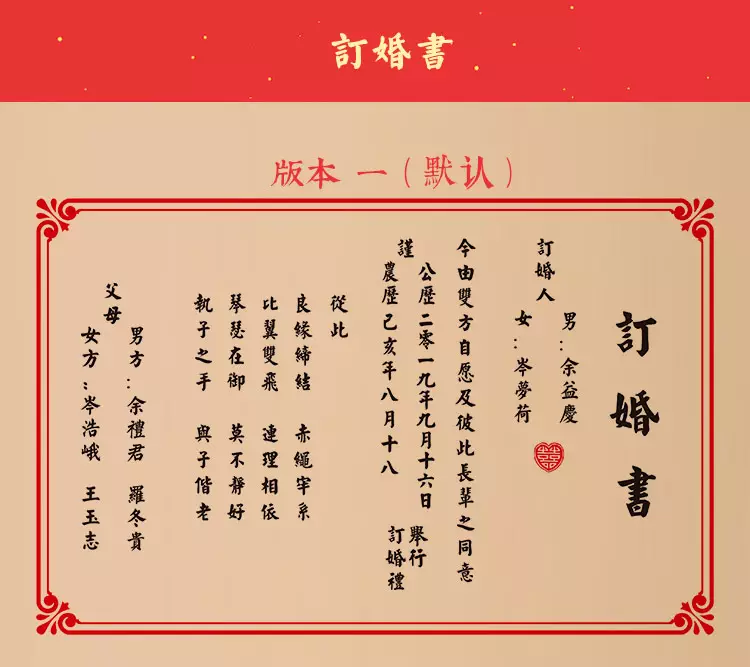 訂婚書
版本 一（默认）
訂婚書
訂婚人
男：余益慶
女：岑夢荷
今由雙方自愿及彼此長輩之同意
謹
公歷二零一九年九月十六日
農歷己亥年八月十八
舉行
訂婚禮
從此
良緣締結 赤繩牢系
比翼雙飛 連理相依
琴瑟在御 莫不靜好
執子之手 與子偕老
父母
男方：余禮君 羅冬貴
女方：岑浩峨 王玉志